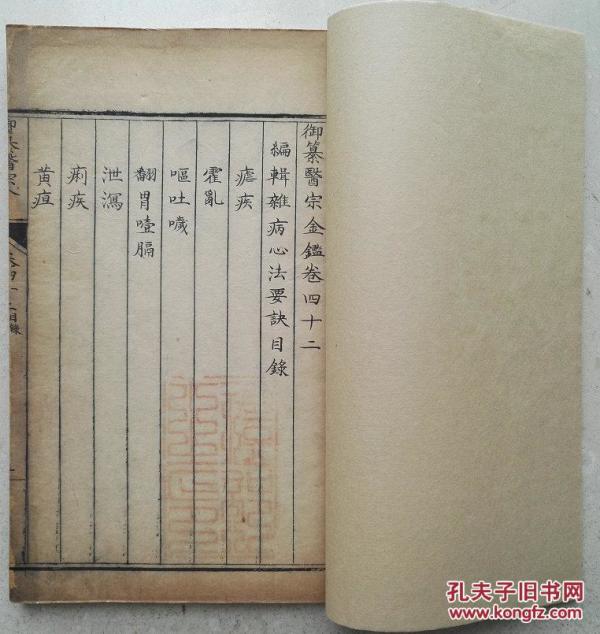 御纂醫宗金鑑卷四十二
編輯雜病心法要訣目錄
瘧疾
霍亂
嘔吐噦
翻胃噎膈
泄瀉
痢疾
黃疸
御纂醫宗金
卷四十二目錄
孔夫子旧书网
www.kongfz.com